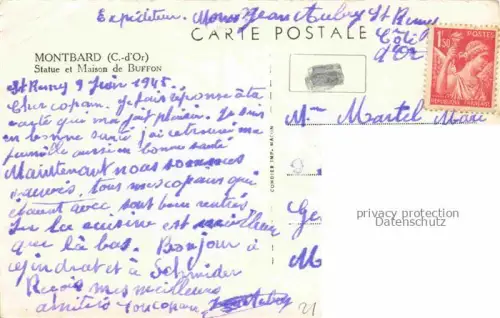 Expéditeur. Mons Jean Aubry St Remy
Côte
d'Or
CARTE POSTALE
MONTBARD (C.-d'Or)
Statue et Maison de BUFFON
St Remy 9 Juin 1945.
Cher copain. Je fais réponse à ta
carte qui me fait plaisir. Je suis
en bonne santé j'ai retrouvé ma
famille aussi en bonne santé
Maintenant nous sommes
tous mes copains qui
étaient avec sont bien rentrés
Ici la cuisine est meilleur
que là bas. Bonjour à
et à Schneider
Reçois mes meilleurs
amitiés ton copain
1F50
POSTES
REPUBLIQUE FRANÇAISE
Mr Martel
Ge
M
privacy protection
Datenschutz
21